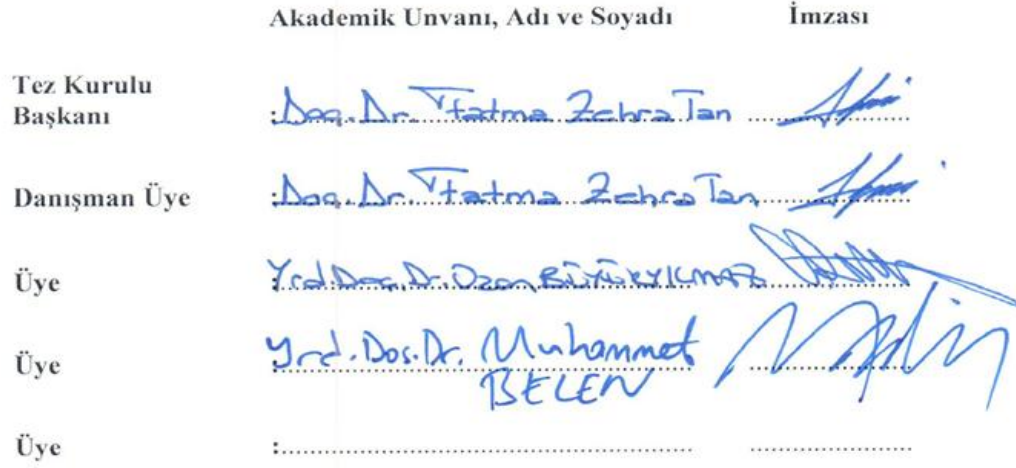 Akademik Unvanı, Adı ve Soyadı İmzası
Tez Kurulu
Başkanı :Doç. Dr. Fatma Zehra Tan
Danışman Üye :Doç. Dr. Fatma Zehra Tan
Üye :Yrd.Doç.Dr.Ozan BÜYÜKYILMAZ
Üye :Yrd.Doç.Dr. Muhammet
BELEN
Üye :